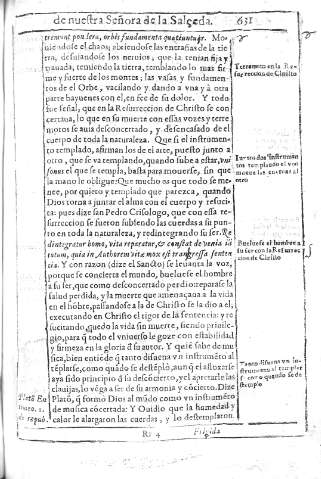 de nuestra Señora de la Salçeda. 631
tremunt pondera, orbis fundamenta quatiuntur. Mo-
viendose el chaos, abriendose las entrañas de la tie-
rra, desuiandose los neruios, que la tenian fixa y
trauada, temiendo la tierra, temblando lo mas fir-
me y fuerte de los montes; las vasas y fundamen-
tos de el Orbe, vacilando y dando a vna y à otra
parte bayuenes con el, en fee de su dolor. Y todo
fue señal, que en la Resurreccion de Christo se con-
certaua, lo que en su muerte con essas vozes y terre
motos se auia desconcertado, y desencasado de el
cuerpo de toda la naturaleza. Que si el instrumen-
to templado, afirman los de el arte, puesto junto a
otro, que se va templando, quando sube a estar, vni
sonas el que se templa, basta para mouerse, sin que
la mano le obligue: Que mucho es que todo se mue-
ne, por quieto y templado que parezca, quando
Dios torna a juntar el alma con el cuerpo y resuci-
ta: pues dize san Pedro Crisologo, que con essa re-
surreccion se fueron subiendo las cuerdas a su pun-
to en toda la naturaleza, y redintegrando su ser. Re
dintegratur homo, vita reperatur, & constat de venia in
totum, quia in Authorem vitæ mox est transgressa senten
tia. Y con razon (dize el Santo) se leuanta la voz,
porque se concierta el mundo, bueluese el hombre
a su ser, que como desconcertado perdio: reparase la
salud perdida, y la muerte que amenaçaua a la vida
en el hōbre, passandose a la de Christo se la dio a el,
executando en Christo el rigor de la sentencia: y re-
sucitando, quedo la vida sin muerte, siendo priuile-
gio, para q̃ todo el vniuerso le goze con estabilidad
y firmeza en la gloria d'su autor. Y quiē sabe de mu
sica, bien entiēde q̃ tanto disuena vn instrumēto al
tēplarse, como quādo se destēplò, aunq̃ el afloxarse
aya sido principio d'su descōcierto, y el apretarle las
clauijas, lo vēga a ser de su armonia y cōcierto. Dize
Platō, q̃ formo Dios al mūdo como vn instrumēto
de musica cōcertada: Y Ouidio que la humedad y
calor le alargaron las cuerdas, y lo destemplaron.
Terremoto en la Re
surreccion de Christo
Buelvese el hombre a
su ser con la Resurrec
cion de Christo
Tanto disuena vn in-
strumento al templar
se como quando se de
stemplo
Platō
Rr 4